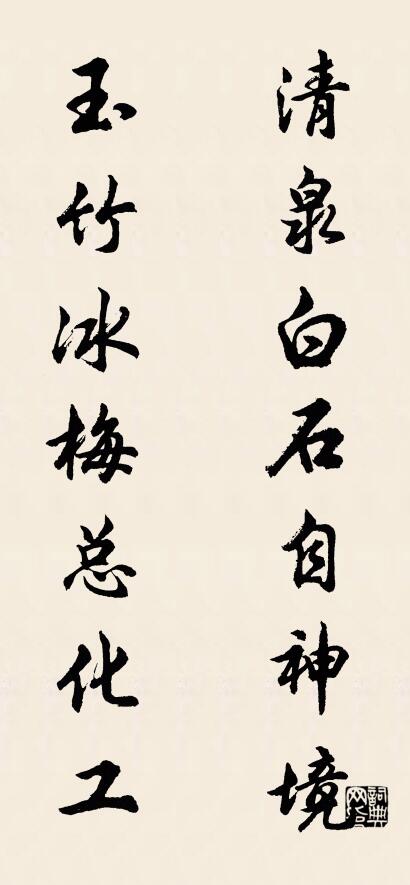 清泉白石自神境
玉竹冰梅总化工